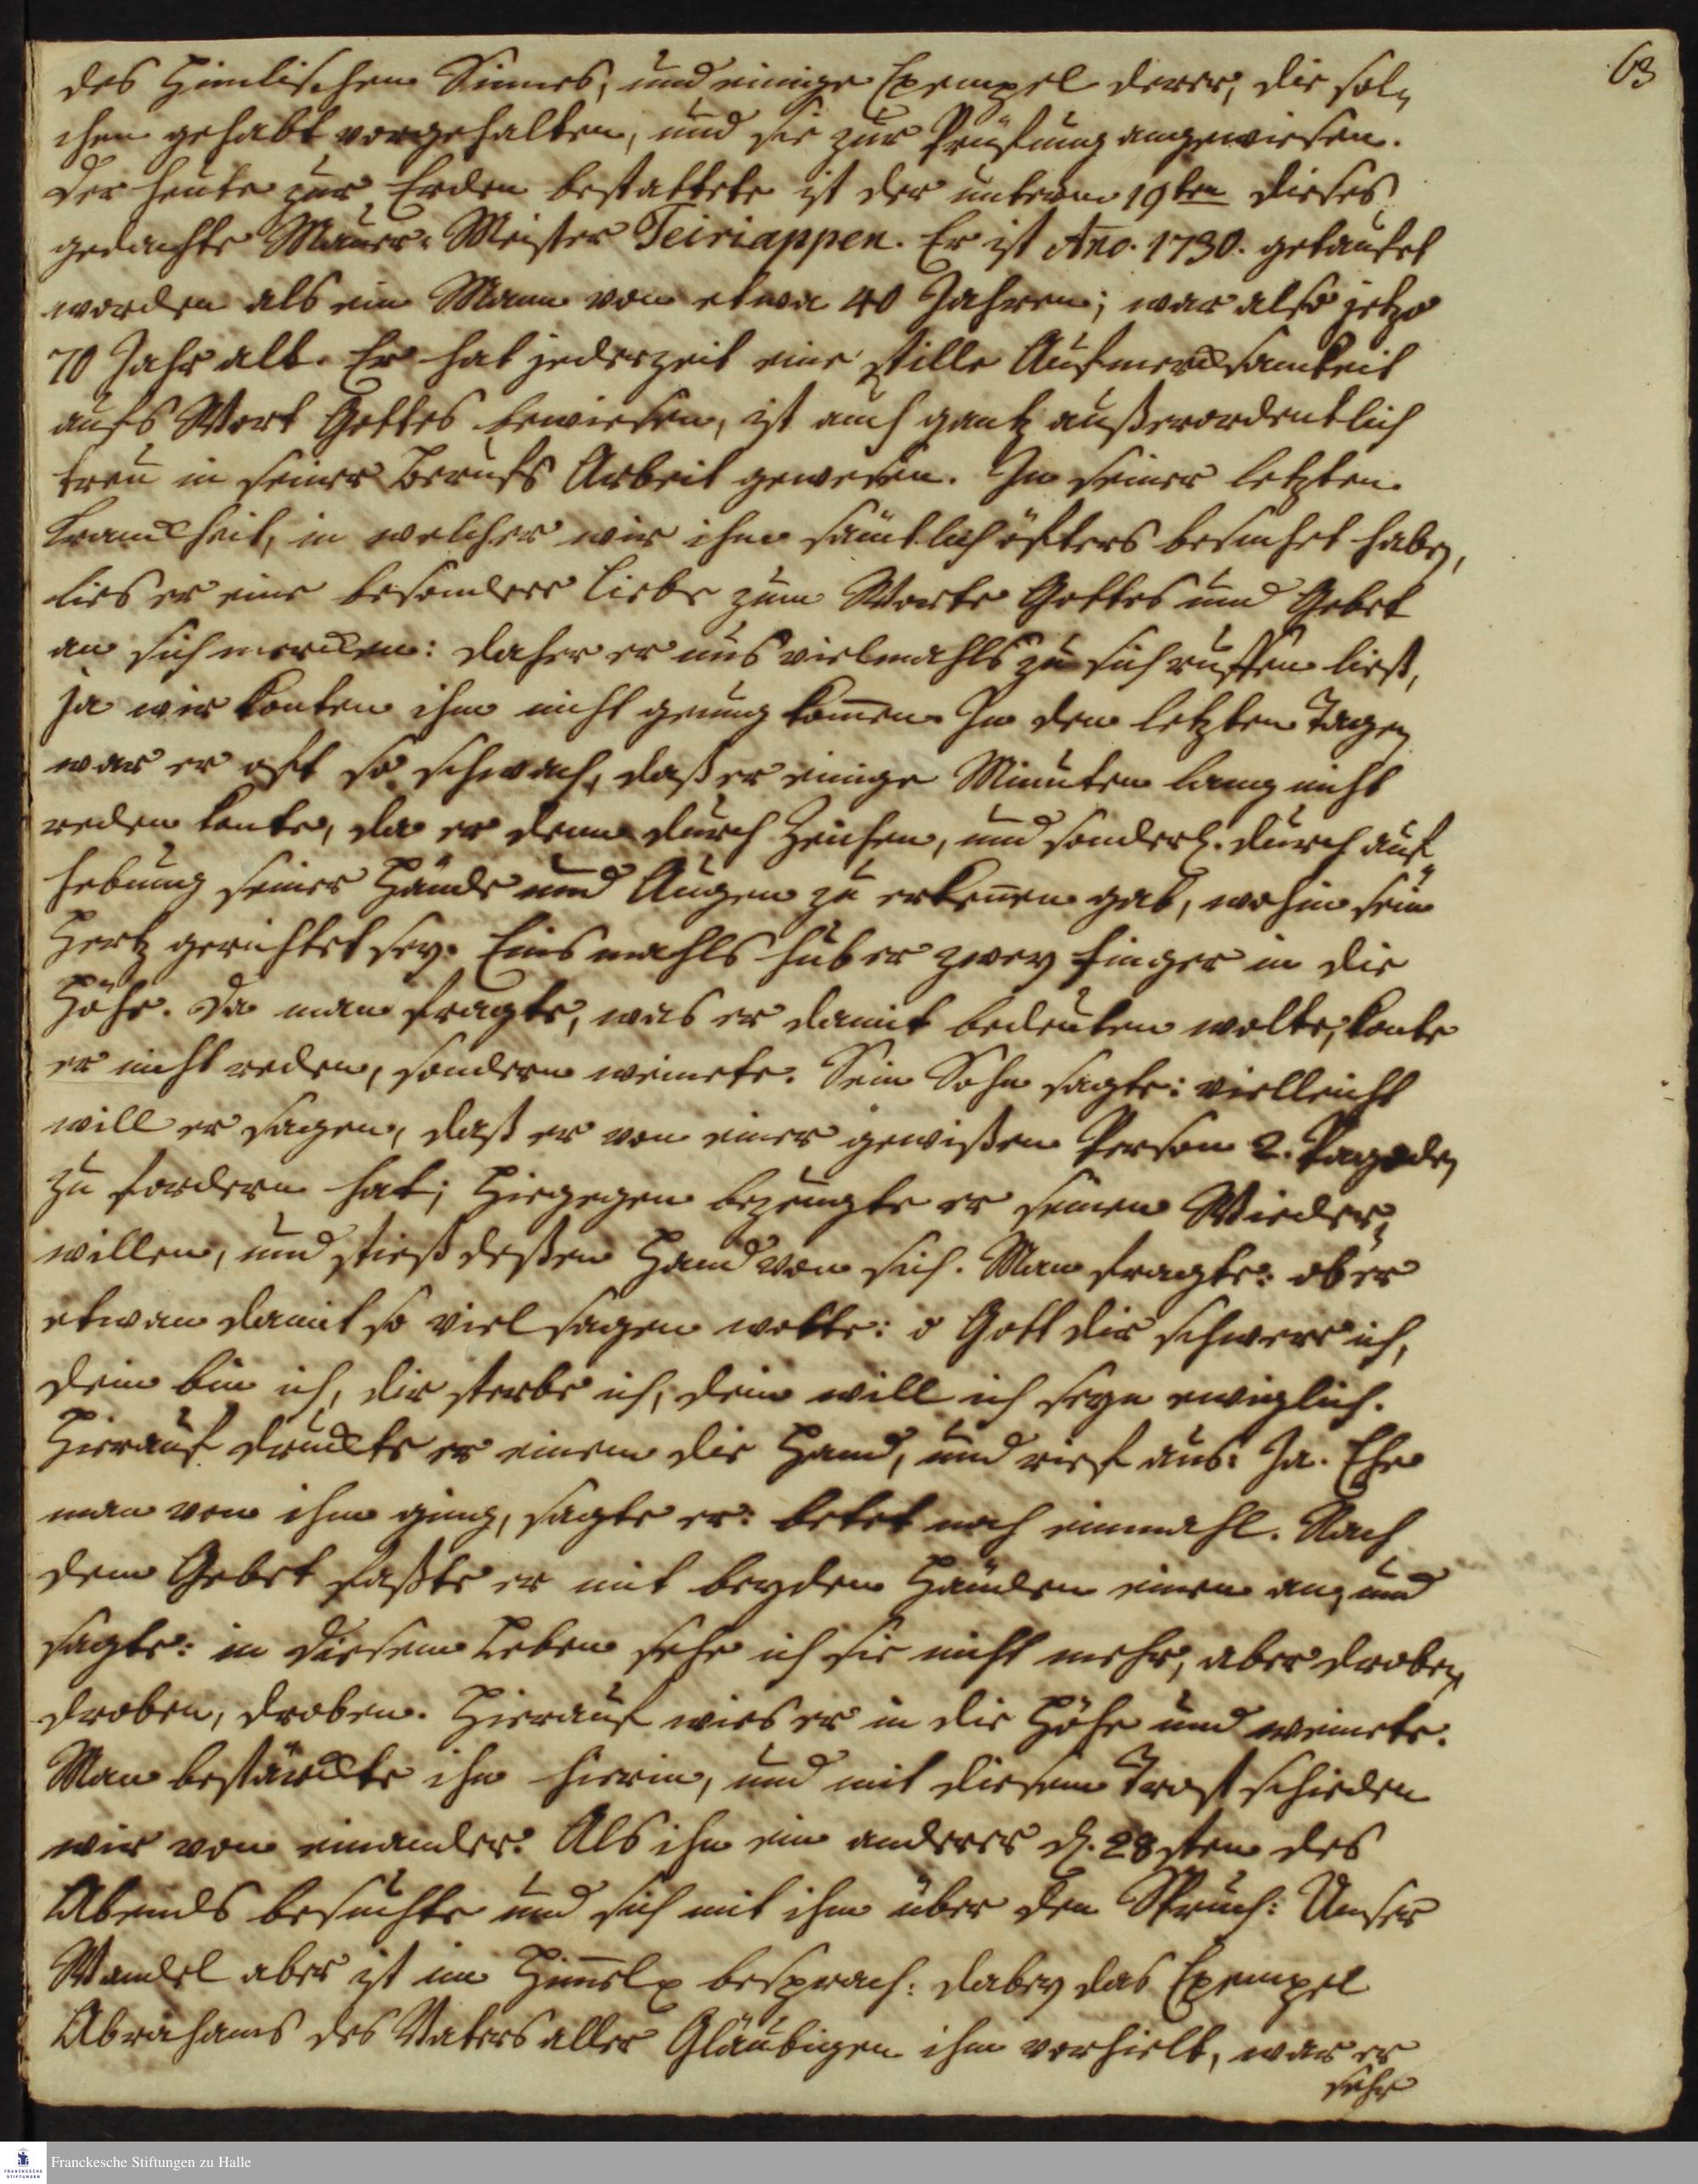 63
des Himlischen Sinnes, und einige Exempel derer, die sol-
chen gehabt vorgehalten, und sie zur Prüfung angewiesen.
Der heute zur Erden bestattete ist der unterm 19ten dieses
gedachte Maurer-Meister Teiriappen. Er ist Ano. 1730. getaufet
worden als ein Mann von etwa 40 Jahren; war also jetzo
70 Jahr alt. Er hat jederzeit eine stille Aufmercksamkeit
aufs Wort Gottes bewiesen, ist auch gantz außerordentlich
treu in seiner Berufs Arbeit gewesen. In seiner letzten
Kranckheit, in welcher wir ihn sämtlich öfters besuchet haben,
lies er eine besondere Liebe zum Worte Gottes und Gebet
an sich mercken: daher er uns vielmahls zu sich ruffen ließ,
ja wir konten ihm nicht genug kom̄en. In den letzten Tagen
war er oft so schwach, daß er einige Minuten lang nicht
reden konte, da er denn durch Zeichen, und sonderl. durch auf-
hebung seiner Hände und Augen zu erken̄en gab, wohin sein
Hertz gerichtet sey. Einsmahls hub er zwey Finger in die
Höhe. Da man fragte, was er damit bedeuten wolte, konte
er nicht reden, sondern weinete. Sein Sohn sagte: vielleicht
will er sagen, daß er von einer gewißen Person 2. Pagoden
zu fordern hat; Hiegegen bezeugte er seinen Wieder-
willen, und stieß deßen Hand von sich. Man fragte: ob er
etwan damit so viel sagen wolte: o Gott dir schwere ich,
dein bin ich, dir sterbe ich, dein will ich seyn ewiglich.
Hierauf druckte er einem die Hand, und rief aus: Ja. Ehe
man von ihm ging, sagte er: betet noch einmahl. Nach
dem Gebet faßte er mit beyden Händen einen an, und
sagte: in diesem Leben sehe ich sie nicht mehr, aber droben,
droben, droben. Hierauf wies er in die Höhe und weinete.
Man bestärckte ihn hierin, und mit diesem Trost schieden
wir von einander. Als ihn ein anderer d. 28sten des
Abends besuchte und sich mit ihm über den Spruch: Unser
Wandel aber ist im Him̄el besprach: dabey das Exempel
Abrahams des Vaters aller Gläubigen ihm vorhielt, war er
sehr
Franckesche Stiftungen zu Halle
FRANCKESCHE
STIFTUNGEN